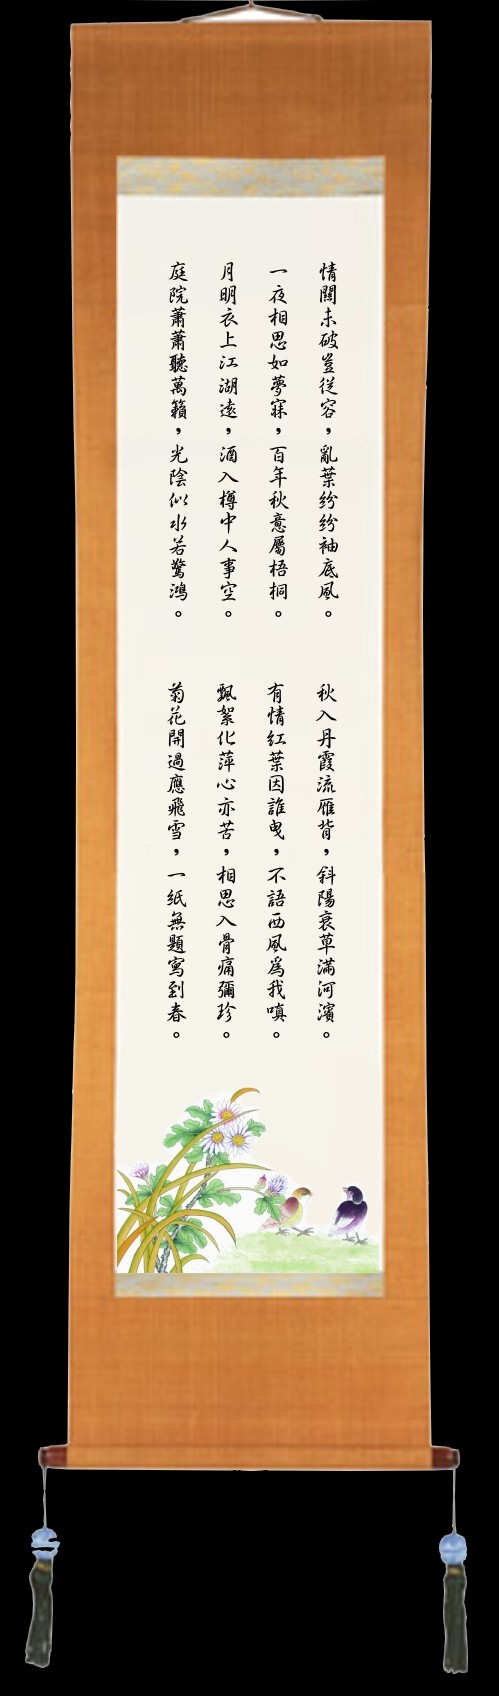 情關未破豈從容，亂葉紛紛袖底風。
一夜相思如夢寐，百年秋意屬梧桐。
月明衣上江湖遠，酒入樽中人事空。
庭院蕭蕭聽萬籟，光陰似水若驚鴻。
秋入丹霞流雁背，斜陽衰草滿河濱。
有情紅葉因誰曳，不語西風為我嗔。
飄絮化萍心亦苦，相思入骨痛彌珍。
菊花開過應飛雪，一紙無題寫到春。